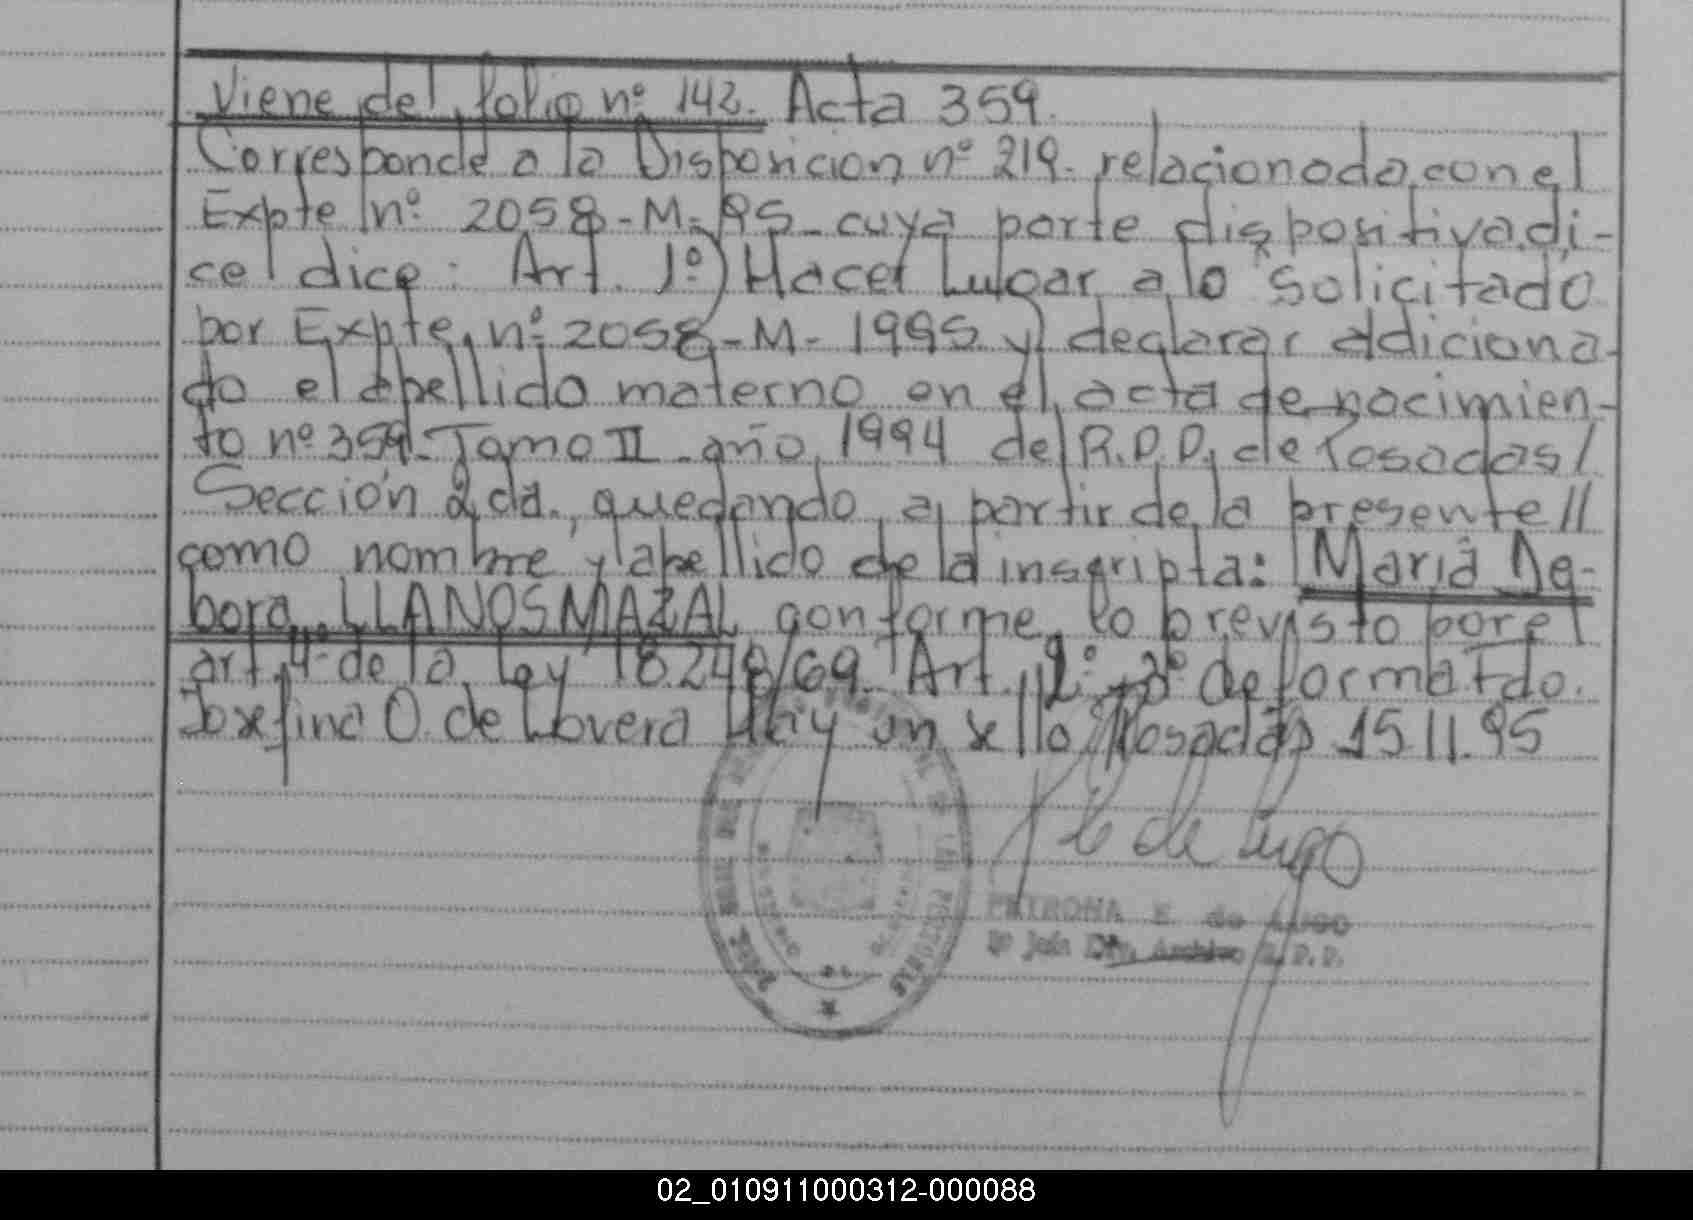 Viene del folio nº 142. Acta 359.
Corresponde a la Disposicion nº 219. relacionada con el
Expte nº 2058-M-95- cuya parte dispositiva di-
ce/ dice: Art. 1º) Hacer Lugar a lo Solicitado
por Expte. nº 2058-M-1995 y/ declarar adiciona-
do el apellido materno en el acta de nacimien-
to nº 359- Tomo II - año 1994 del R.P.P. de Posadas/
Sección 2da., quedando a partir de la presente//
como nombre y apellido de la inscripta: Maria De-
bora LLANOS MAZAL conforme lo previsto por el
art. 4º de la Ley 18.248/69. Art. 2º de forma Fdo.
Josefina O. de Lovera Hay un sello Posadas 15.11.95
PETRONA E. de LUGO
Archivo R.P.P.
02_010911000312-000088